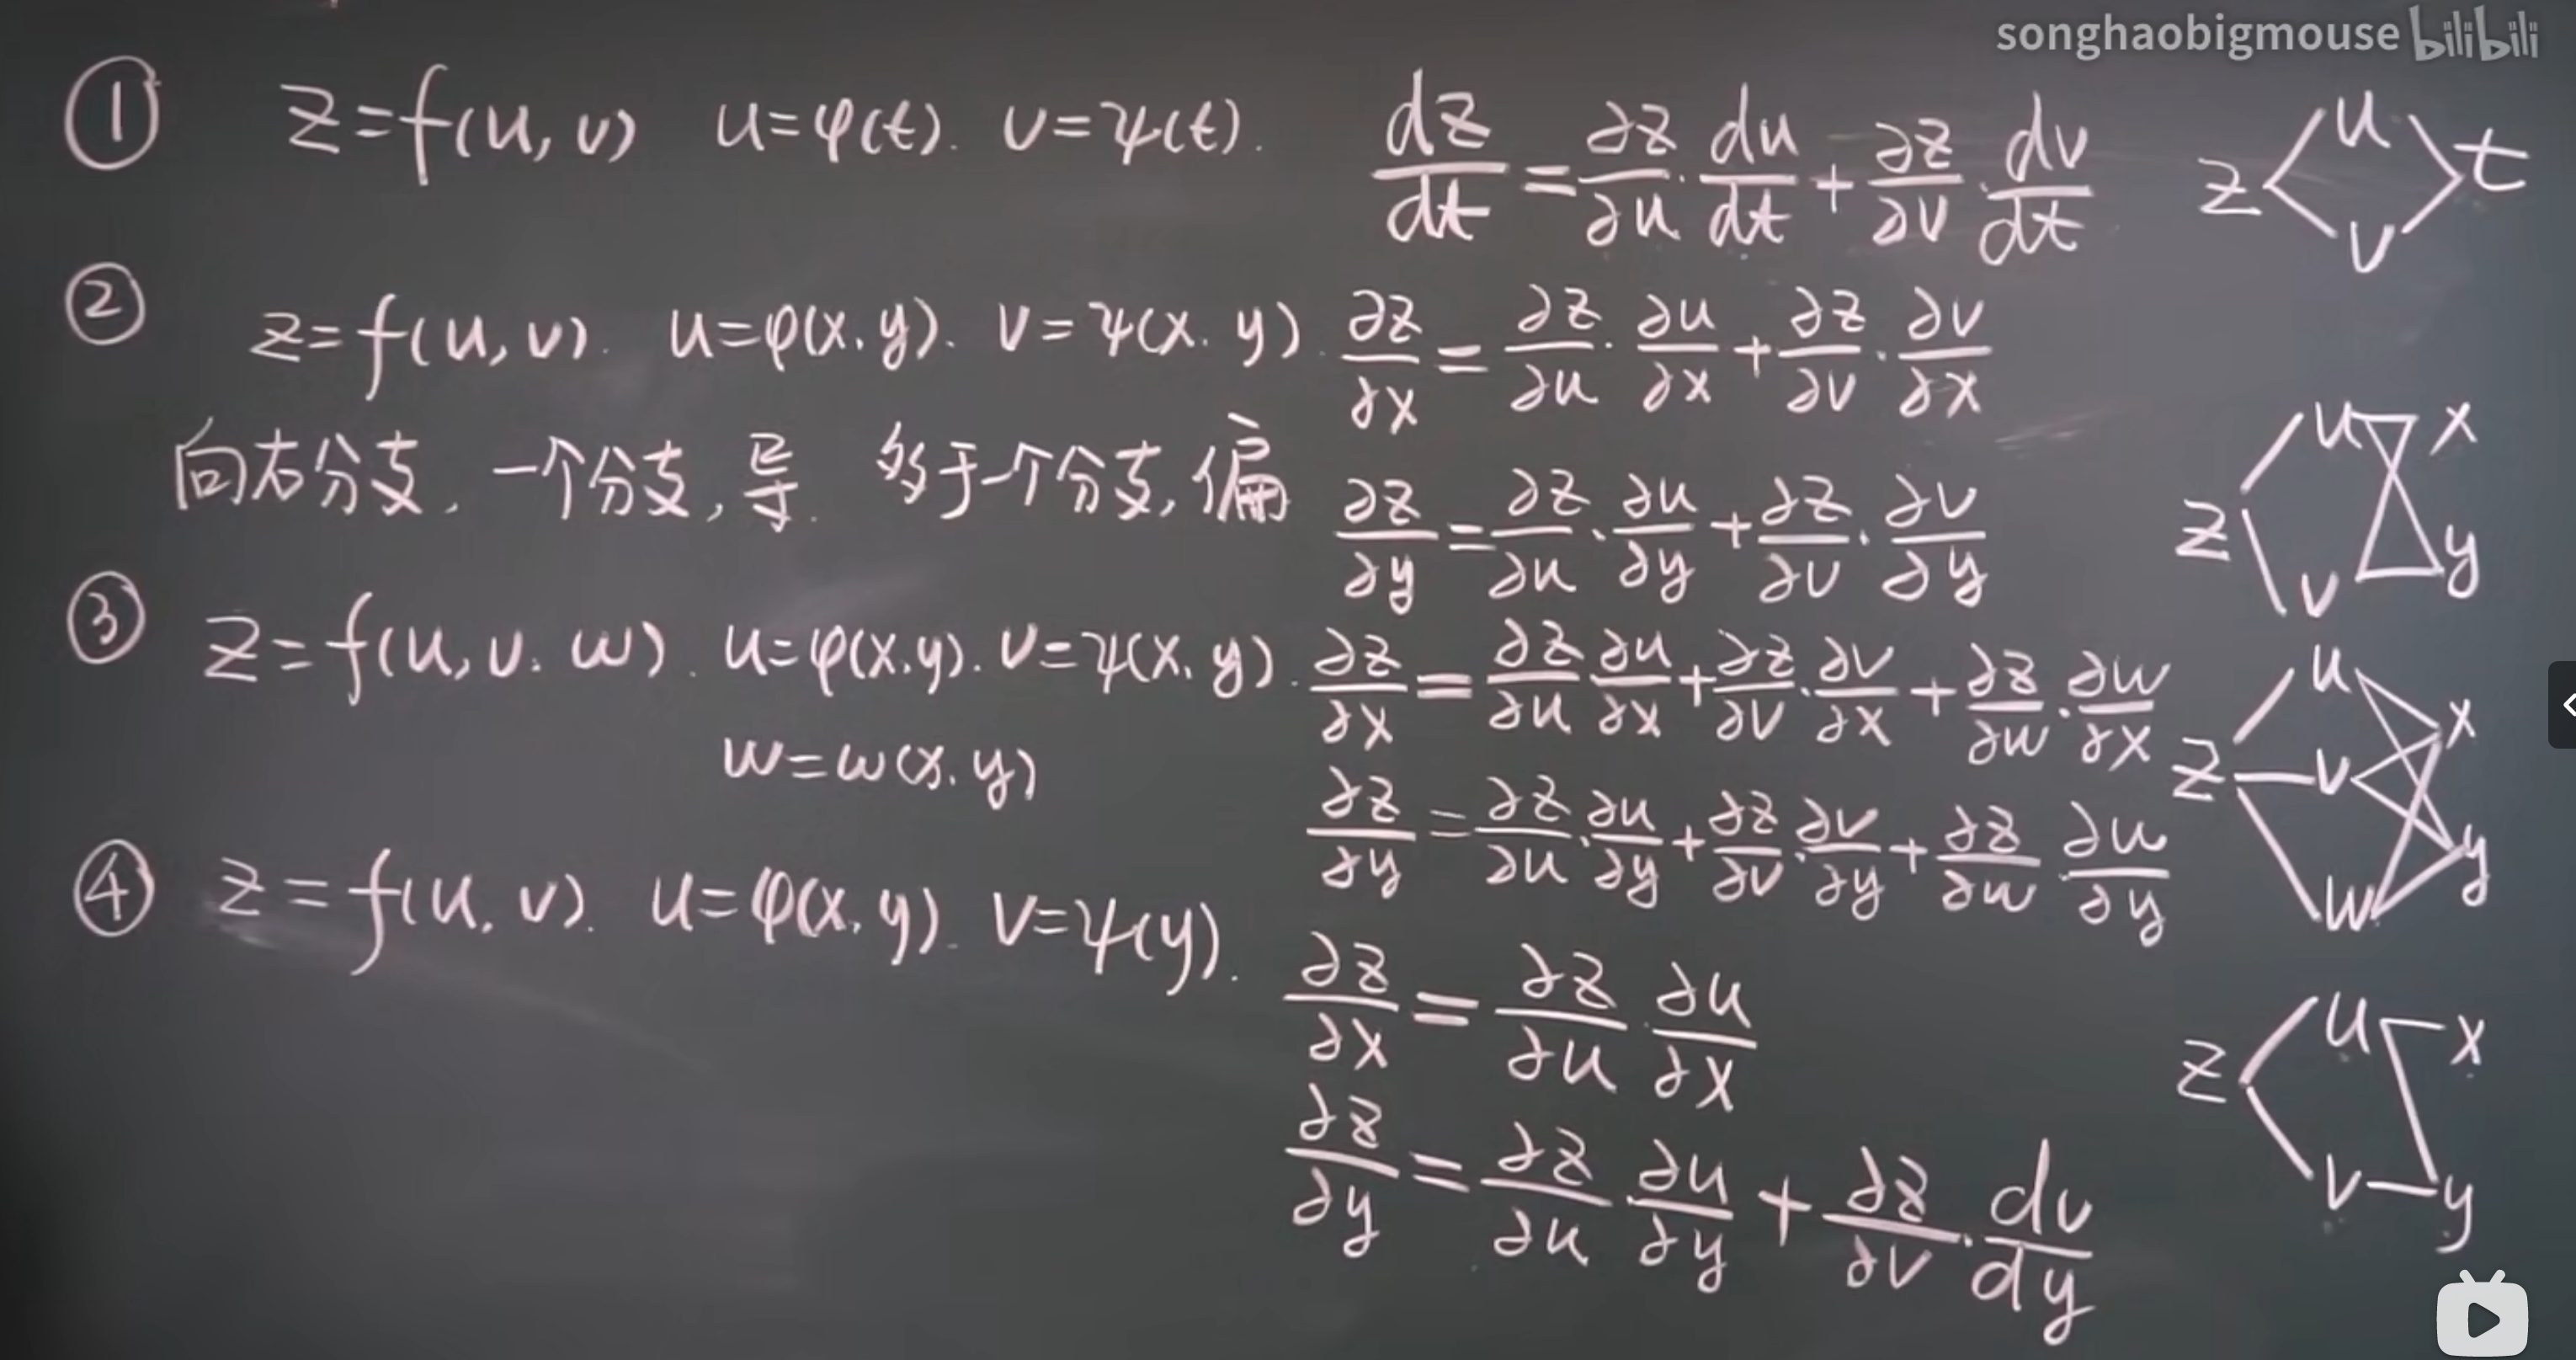 songhaobigmouse bilibili
① z=f(u,v) u=φ(t). v=ψ(t). dz/dt=∂z/∂u·du/dt+∂z/∂v·dv/dt z u v t
② z=f(u,v). u=φ(x,y). v=ψ(x.y). ∂z/∂x=∂z/∂u·∂u/∂x+∂z/∂v·∂v/∂x
向右分支.一个分支,导. 多于一个分支,偏 ∂z/∂y=∂z/∂u·∂u/∂y+∂z/∂v·∂v/∂y z u v x y
③ z=f(u,v.w). u=φ(x.y). v=ψ(x.y). ∂z/∂x=∂z/∂u ∂u/∂x+∂z/∂v·∂v/∂x+∂z/∂w·∂w/∂x
w=w(x.y) ∂z/∂y=∂z/∂u·∂u/∂y+∂z/∂v·∂v/∂y+∂z/∂w·∂w/∂y z u v w x y
④ z=f(u.v). u=φ(x.y). v=ψ(y). ∂z/∂x=∂z/∂u·∂u/∂x
∂z/∂y=∂z/∂u·∂u/∂y+∂z/∂v·dv/dy z u v x y